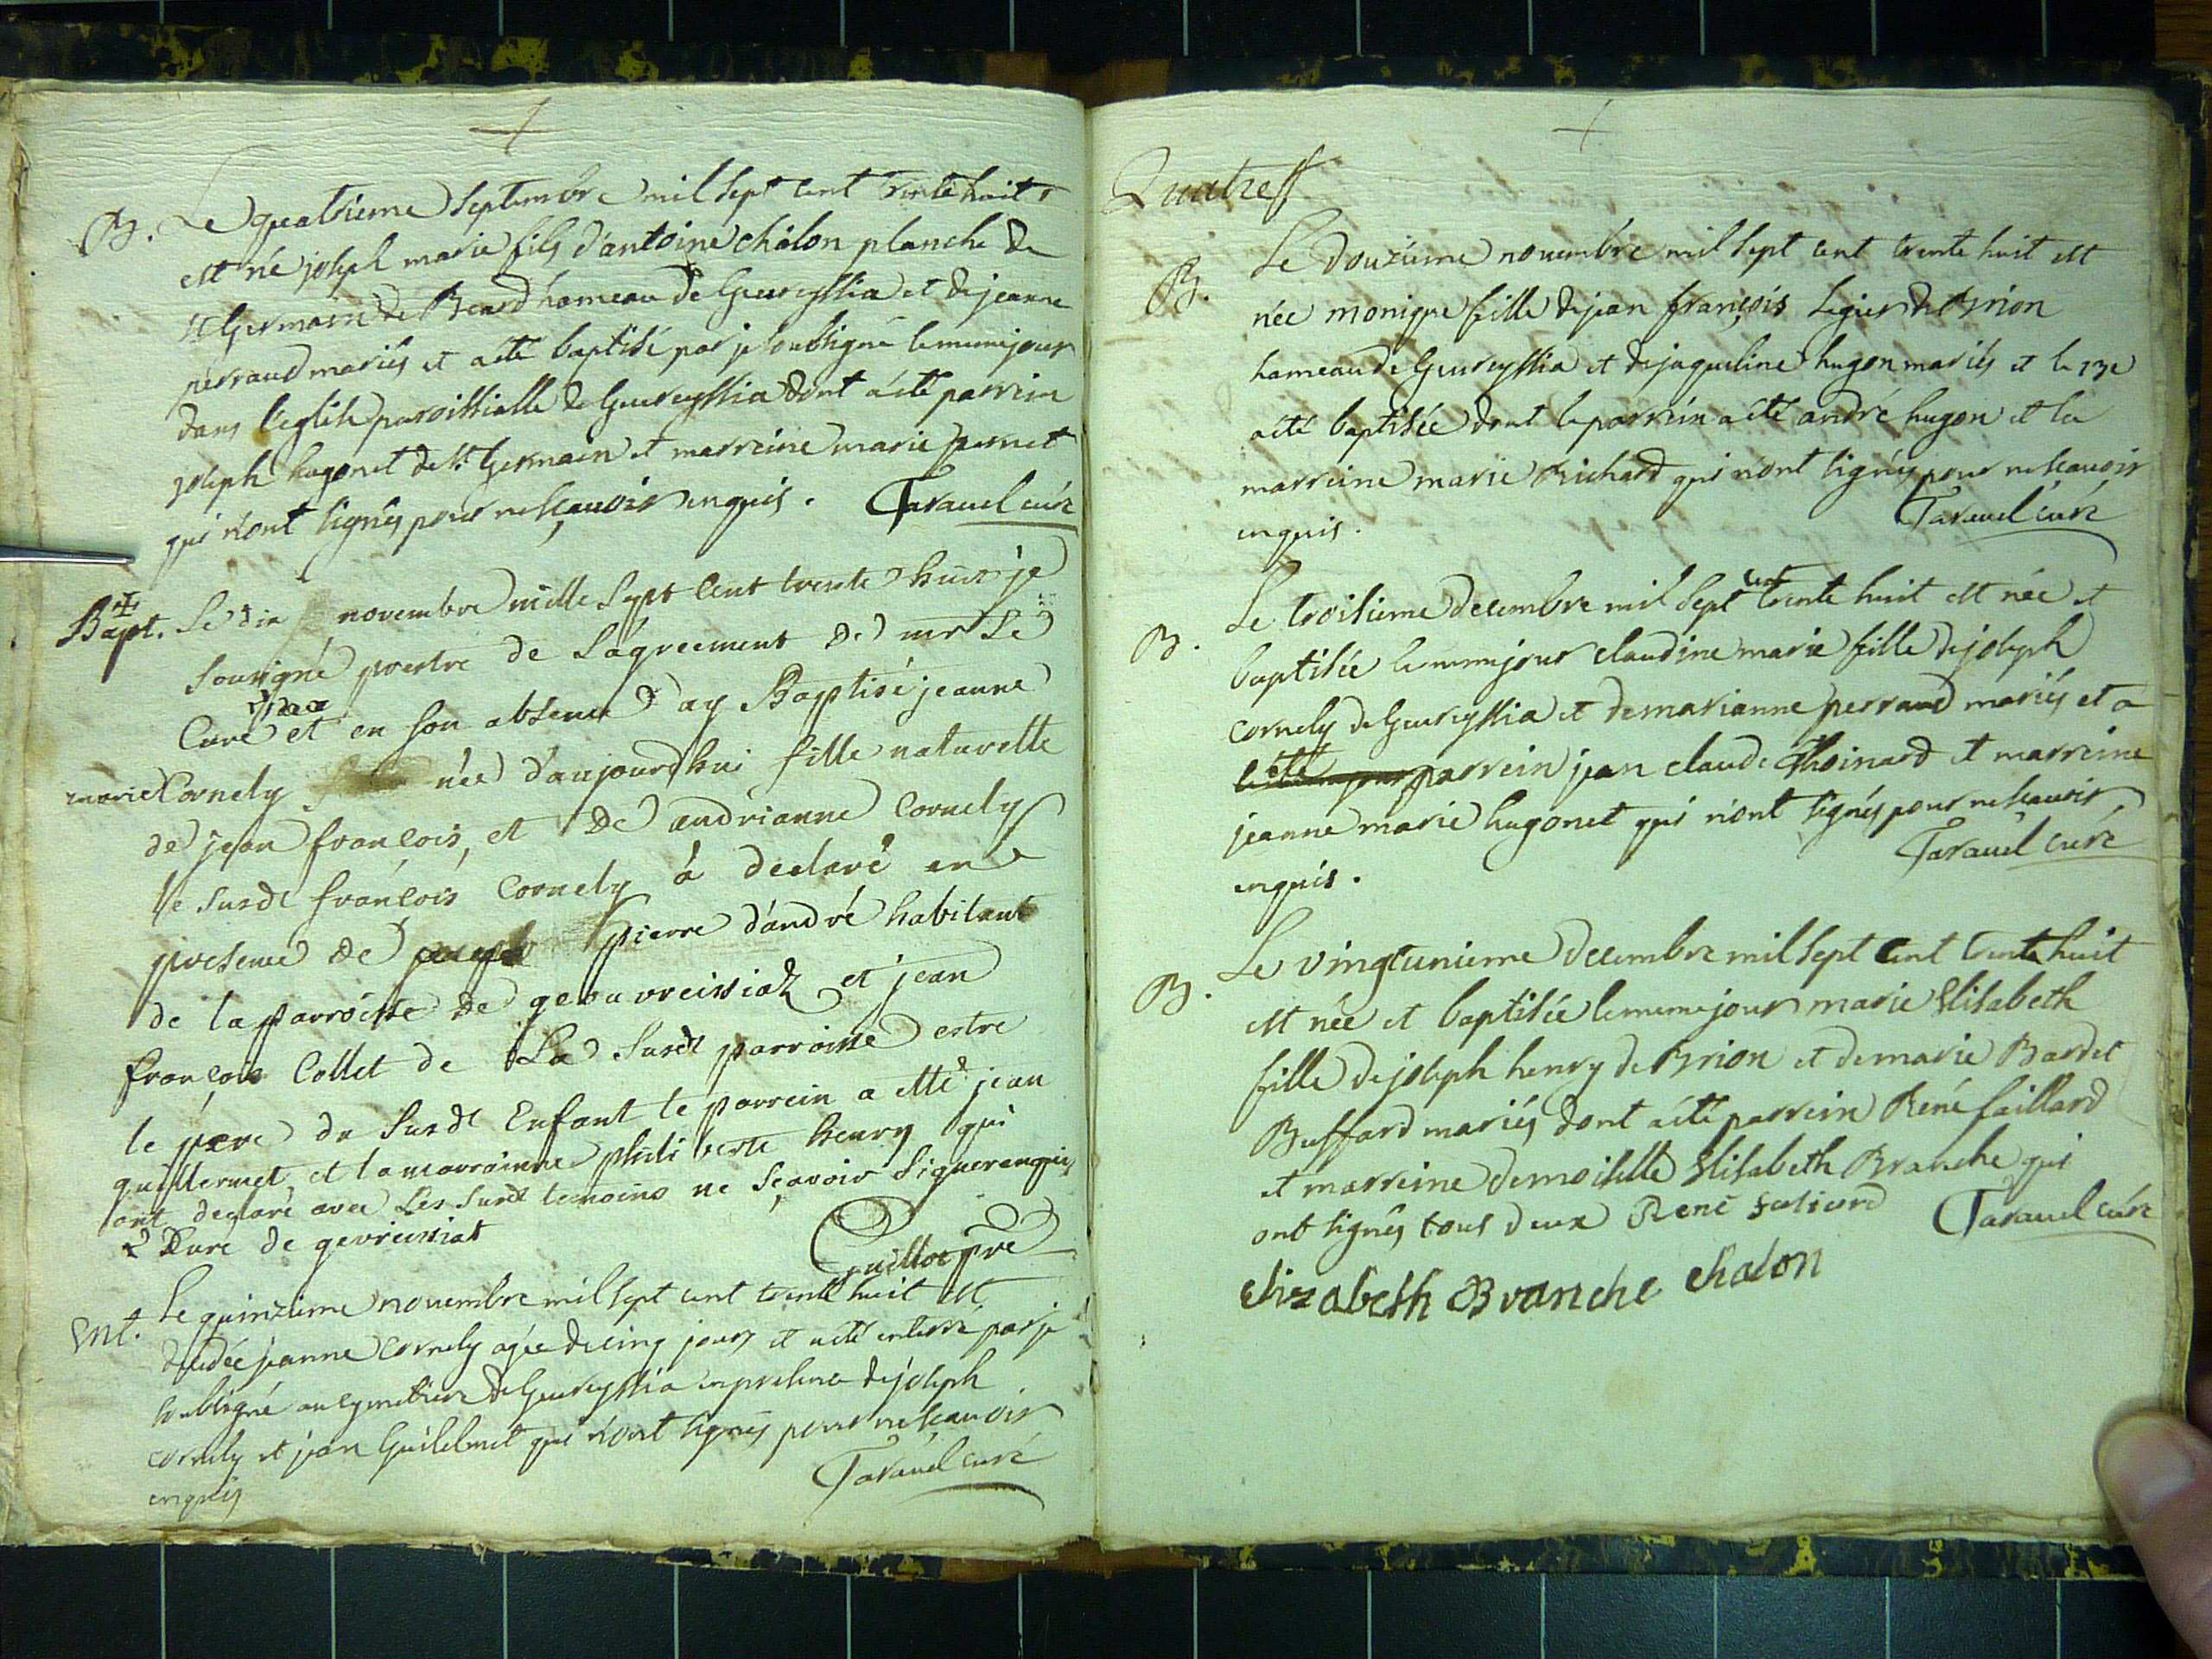 B. Le quatrieme septembre mil sept cent trente huit
est né joseph marie fils d'antoine chalon planche de
st Germain de Beard hameau de Geureyssia et de jeanne
perraud mariés et a été baptisé par je soubsigné le meme jour
dans l'eglise paroissialle de Geureyssia dont a été parrein
joseph hugonet de st Germain et marreine marie pernet
qui n'ont signés pour ne sçauoir enquis. Tarauel curé
Bapt. Le dix novembre mille sept cent trente huit je
sousigné prestre de l'agreement de mr le
Curé et en son absence ay Baptisé jeanne
marie Cornely née d'aujourdhui fille naturelle
de jean françois, et de andrianne Cornely
le susdt françois Cornely à declaré en
presence de pierre d'andré habitant
de la parroisse de geouvreissiaz et jean
françois Collet de La susdt parroisse estre
le pere du susdt Enfant le parrein a etté jean
quillermet et la marroinne philiberte henry qui
ont declaré avec Les susdt temoins ne sçavoir signer enquis
Cure de gevreissiat
Guillot pre
Ent. Le quinzieme nouembre mil sept cent trente huit est
decedée jeanne cornely agée de cinq jours et a été enterré par je
soubsigné au cymetiere de Geureyssia en presence de joseph
cornely et jean Guilelmet qui n'ont signés pour ne scauoir
enquis Tarauel curé
Quatre
B. Le douzieme nouembre mil sept cent trente huit est
née monique fille de jean françois Legier de Brion
hameau de Geureyssia et de jaqueline hugon mariés et le 13e
a été baptisée dont le parrein a été andré hugon et la
marreine marie Richard qui n'ont signés pour ne scauoir
enquis. Tarauel curé
B. Le troisieme decembre mil sept cent trente huit est née et
baptisée le meme jour claudine marie fille de joseph
cornely de Geureyssia et de marianne perraud mariés et a
été parrein jean claude Thoinard et marreine
jeanne marie hugonet qui n'ont signés pour ne scauoir
enquis. Tarauel curé
B. Le vingtunieme decembre mil sept cent trente huit
est née et baptisée le meme jour marie Elisabeth
fille de joseph henry de Brion et de marie Bardet
Buffard mariés dont a été parrein René faillard
et marreine demoiselle Elisabeth Branche qui
ont signés tous deux René faliard Tarauel curé
Elizabeth Branche chalon